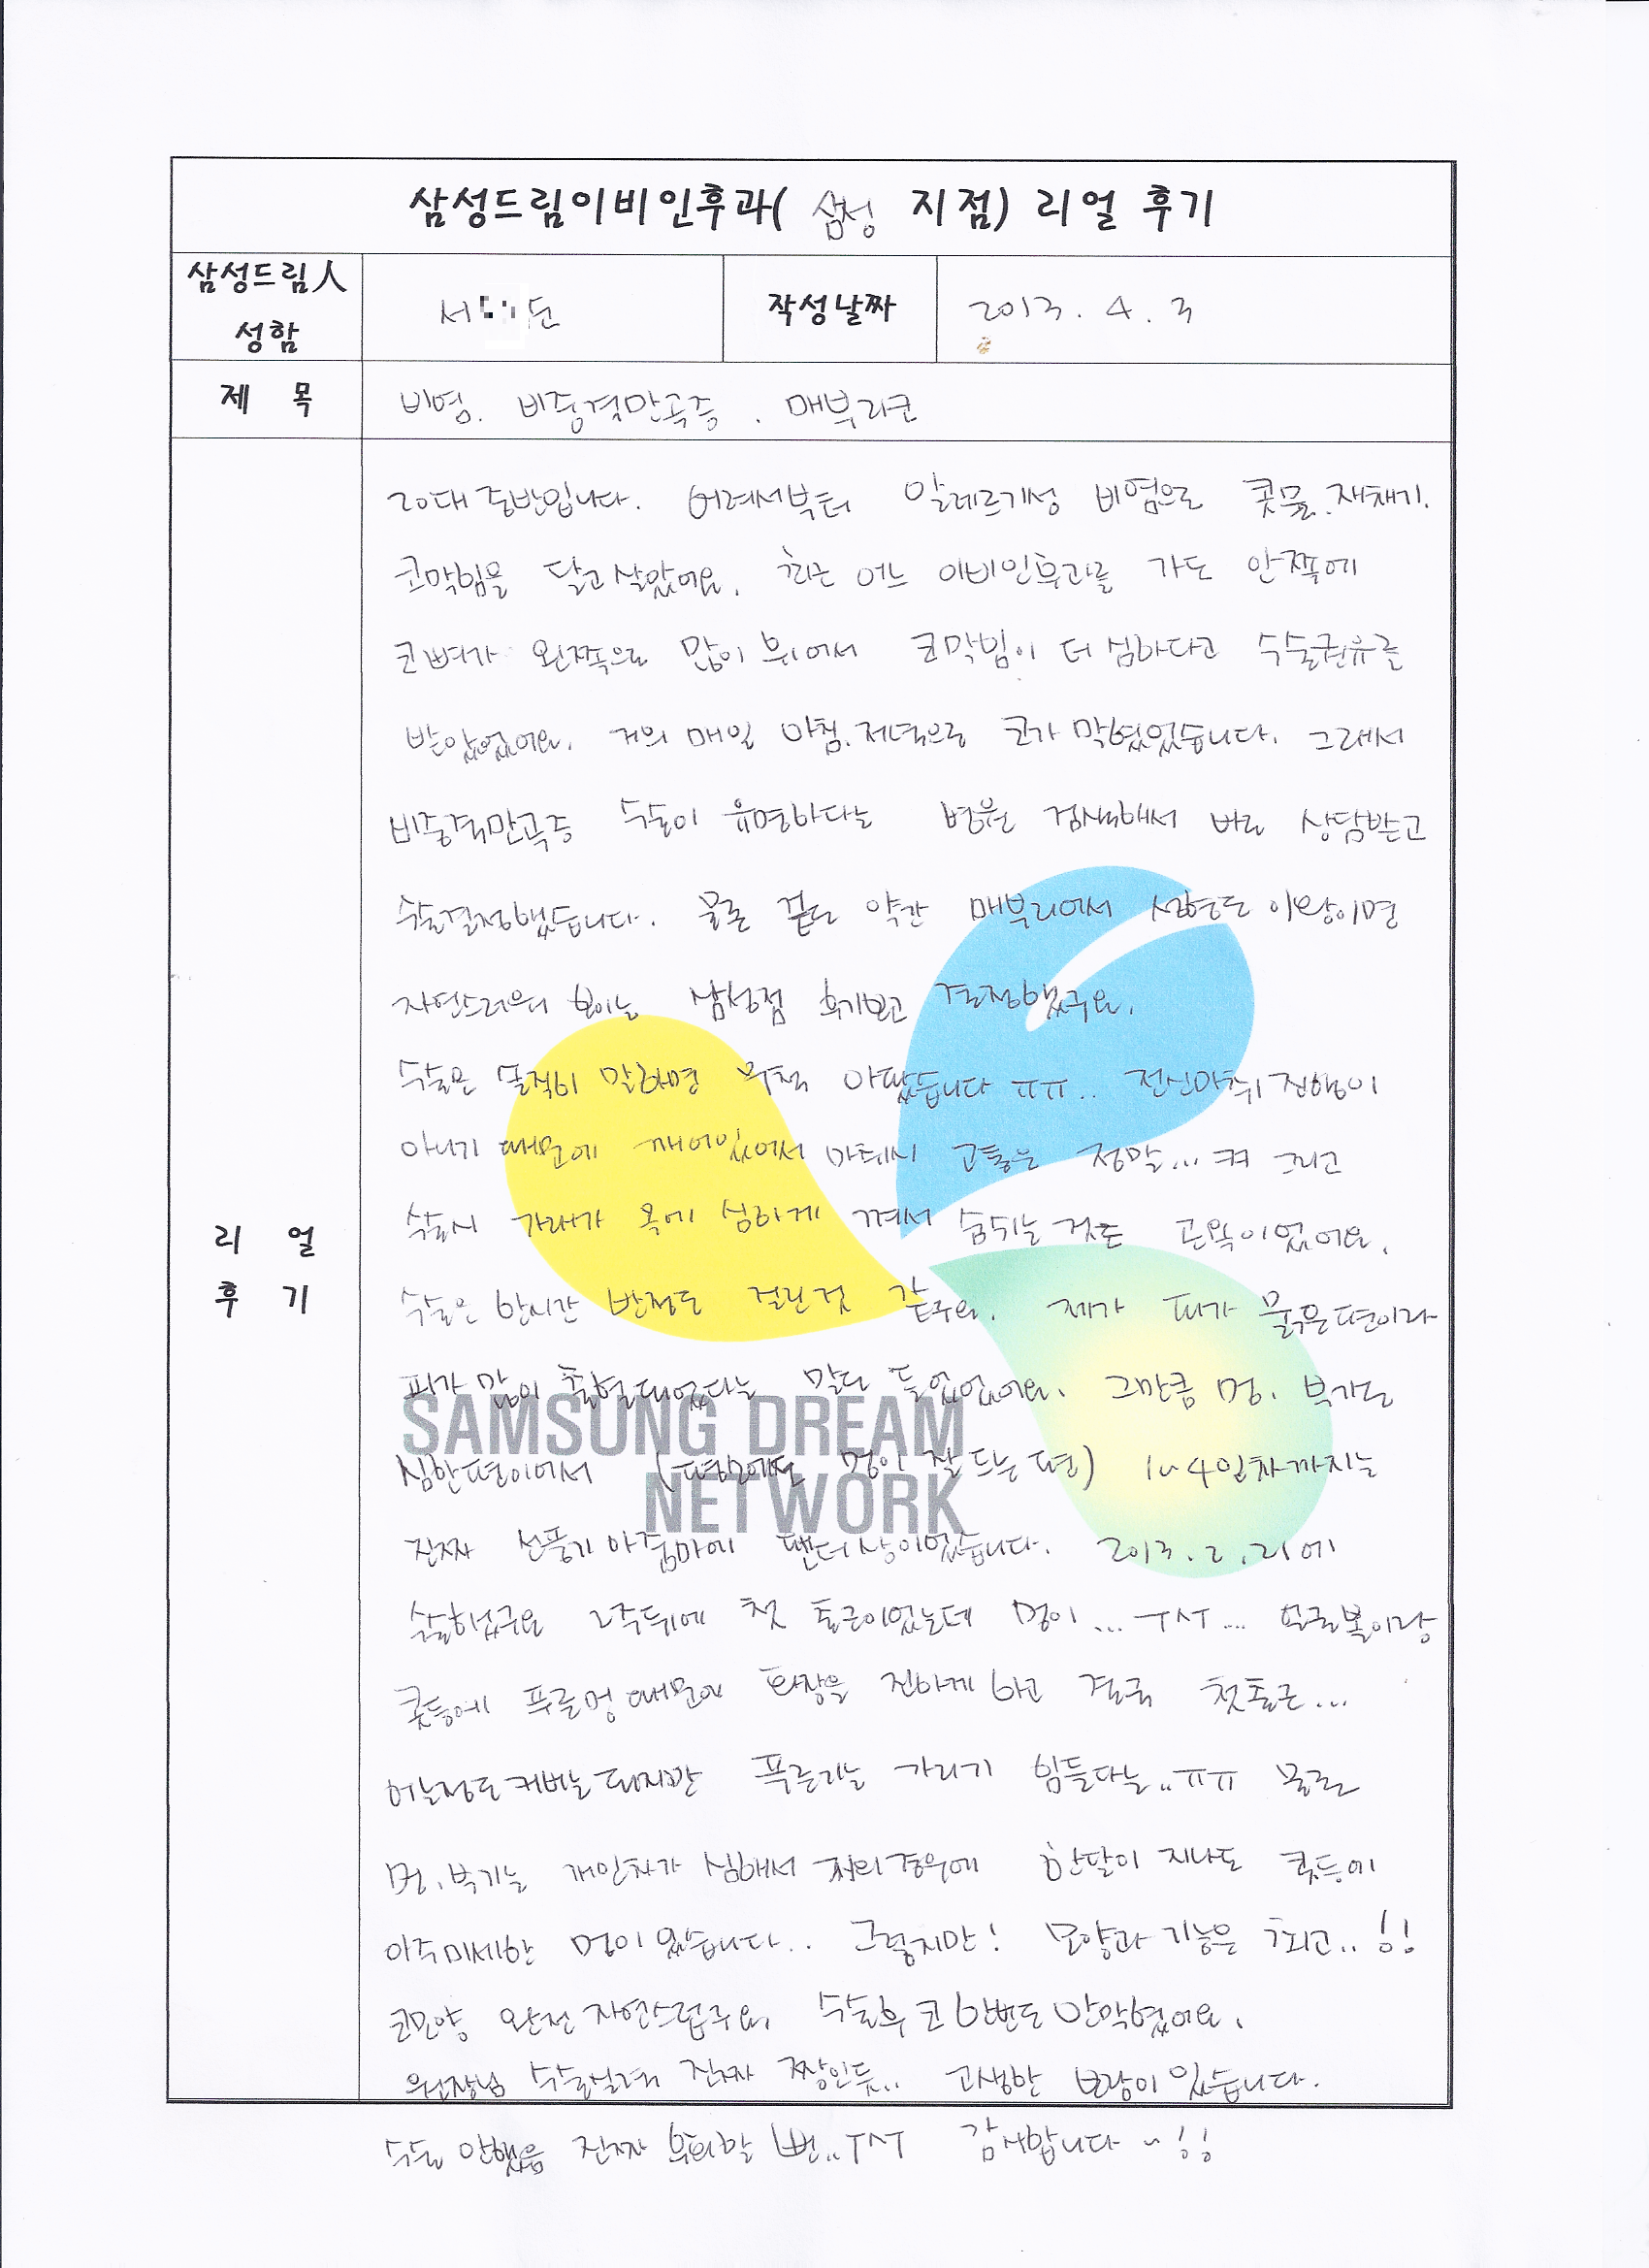 삼성드림이비인후과( 삼성 지점) 리얼 후기
삼성드림人
성함
서 준
작성날짜
2013. 4. 3
제 목
비염. 비중격만곡증. 매부리코
리 얼
후 기
20대 중반입니다. 어려서부터 알레르기성 비염으로 콧물.재채기.
코막힘을 달고 살았어요. 최근 어느 이비인후과를 가도 안쪽에
코뼈가 왼쪽으로 많이 휘어서 코막힘이 더 심하다고 수술권유를
받았었어요. 거의 매일 아침.저녁으로 코가 막혔었습니다. 그래서
비중격만곡증 수술이 유명하다는 병원 검색해서 바로 상담받고
수술결정했습니다. 물론 겉도 약간 매부리여서 성형도 이왕이면
자연스러워 보이는 삼성점 후기보고 결정했구요.
수술은 솔직히 말하면 무척 아팠습니다 ㅠㅠ.. 전신마취 진행이
아니기 때문에 깨어있어서 마취시 고통은 정말... 커 그리고
수술시 가래가 목에 심하게 껴서 숨쉬는 것도 곤욕이었어요.
수술은 한시간 반정도 걸린것 같구요. 제가 피가 묽은편이라
피가 많이 출혈되었다는 말도 들었었어요. 그만큼 멍. 부기도
심한편이어서 (평소에도 멍이 잘 드는 편) 1~4일차까지는
진짜 선풍기 아줌마에 팬더상이었습니다. 2013.2.21에
수술하였구요 2주뒤에 첫 출근이었는데 멍이... ㅜㅅㅜ... 얼굴볼이랑
콧등에 푸른멍 때문에 화장을 진하게 하고 결국 첫출근...
어느정도 커버는 되지만 푸른기는 가리기 힘들다는..ㅠㅠ 물론
멍.부기는 개인차가 심해서 저의경우에 한달이 지나도 콧등에
아주미세한 멍이 있습니다.. 그렇지만! 모양과 기능은 최고..!!
코모양 완전 자연스럽구요. 수술후 코 한번도 안막혔어요.
원장님 수술실력 진짜 짱인듯.. 고생한 보람이 있습니다.
수술 안했음 진짜 후회할 뻔..ㅜㅅㅜ 감사합니다~!!
SAMSUNG DREAM
NETWORK